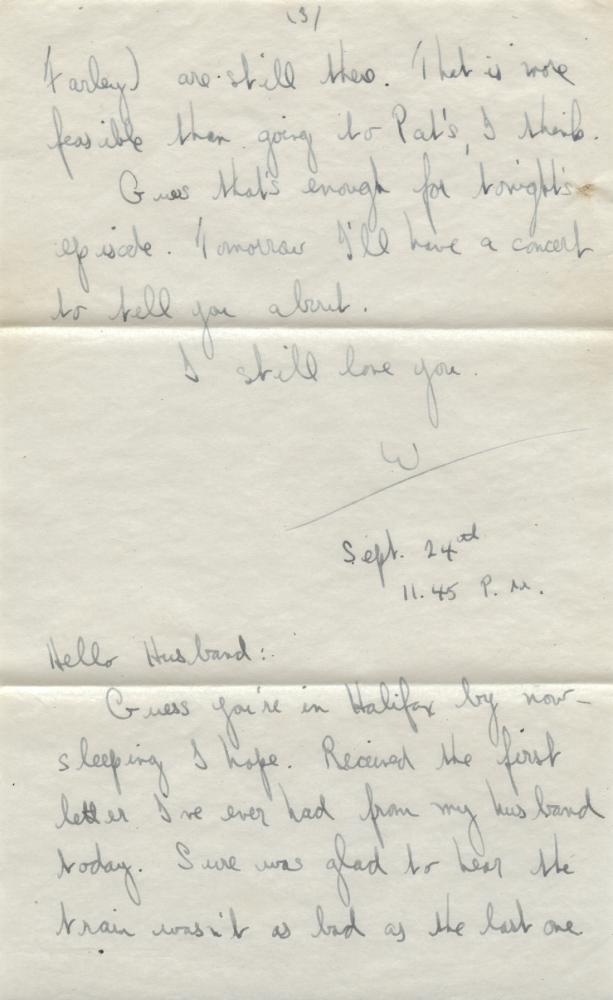 (3)
Farley) are still there. That is more
feasible than going to Pat's, I think.
Guess that's enough for tonight's
episode. Tomorrow I'll have a concert
to tell you about.
I still love you.
W
Sept. 24th
11.45 P.M.
Hello Husband:
Guess you're in Halifax by now -
sleeping I hope. Received the first
letter I've ever had from my husband
today. Sure was glad to hear the
train wasn't as bad as the last one